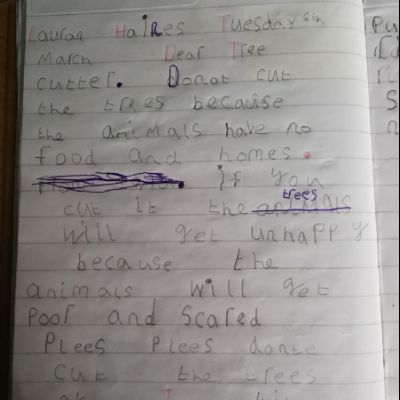 Lauran Haires Tuesday 6th
March Dear Tree
cutter. Donot cut
the trees because
the animals have no
food and homes.
if you
cut it the trees animals
will get unhappy
because the
animals will get
poor and scared
Plees Plees donte
cut the trees